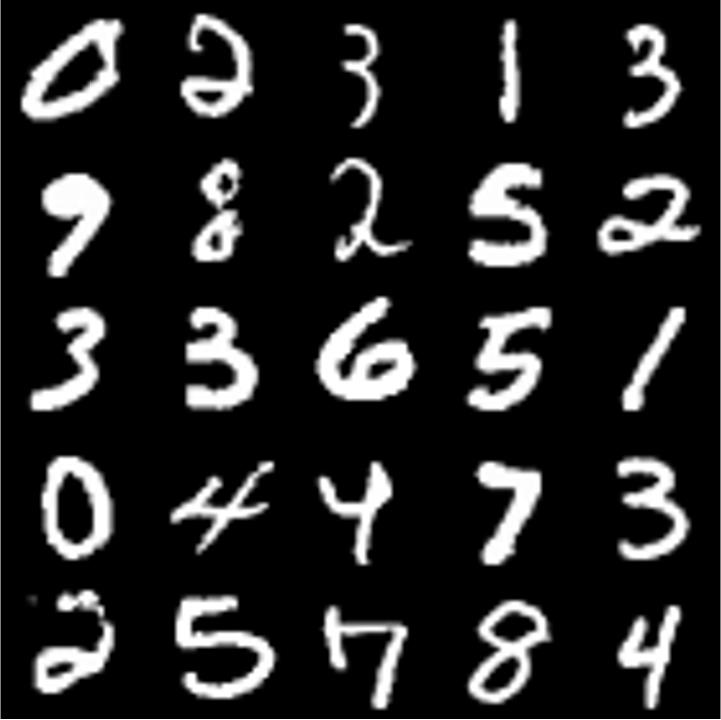 0 2 3 1 3
9 8 2 5 2
3 3 6 5 1
0 4 4 7 3
2 5 7 8 4